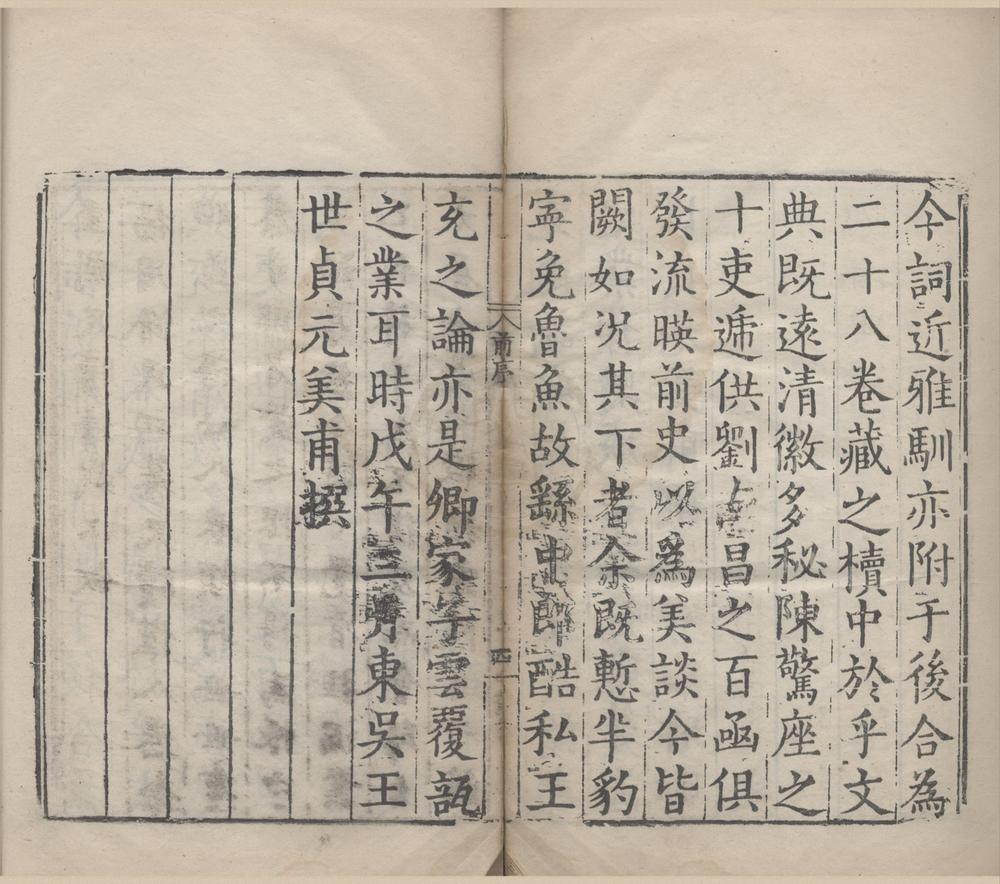 今詞近雅馴亦附于後合為
二十八卷藏之櫝中於乎文
典既遠清徽多秘陳驚座之
十吏遞供劉昌之百函俱
發流暎前史以為美談今皆
闕如况其下者余既慙半豹
寧免魯魚故繇中郎酷私王
前序
四
充之論亦是卿家子雲覆瓿
之業耳時戊午三月東吳王
世貞元美甫撰